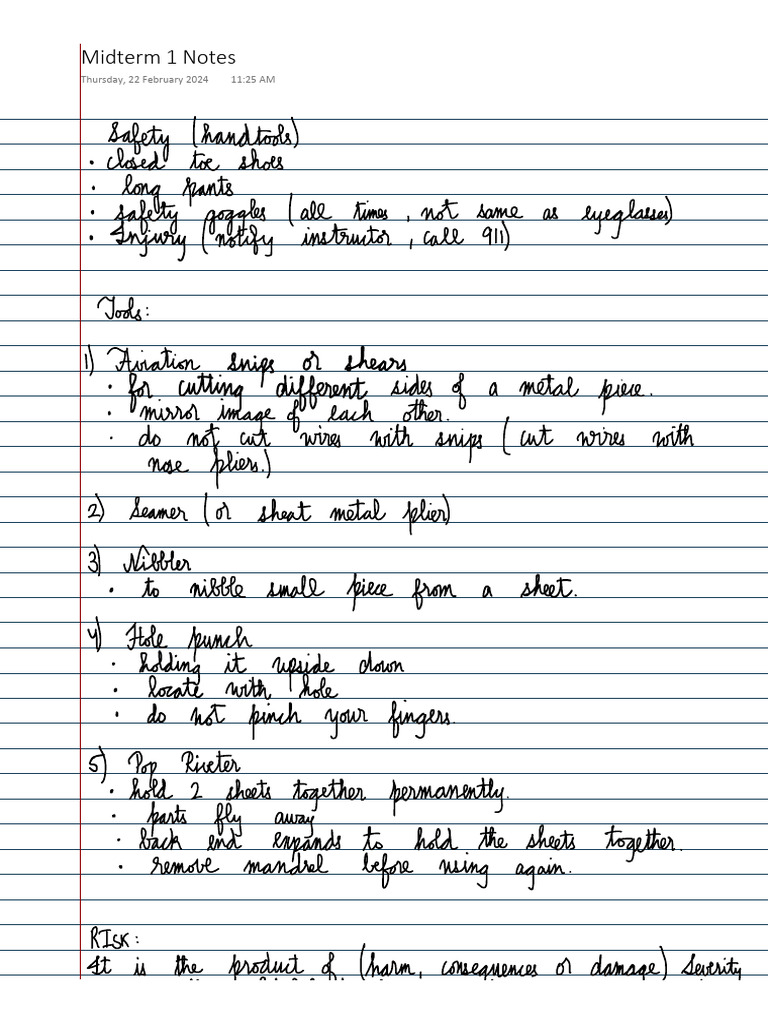 Midterm 1 Notes
Thursday, 22 February 2024 11:25 AM
Safety (handtools)
• closed toe shoes
• long pants
• safety goggles (all times, not same as eyeglasses)
• Injury (notify instructor, call 911)
Tools:
1) Aviation snips or shears
• for cutting different sides of a metal piece.
• mirror image of each other.
• do not cut wires with snips (cut wires with
nose pliers.)
2) Seamer (or sheat metal plier)
3) Nibbler
• to nibble small piece from a sheet.
4) Hole punch
• holding it upside down
• locate with hole
• do not pinch your fingers.
5) Pop Riveter
• hold 2 sheets together permanently.
• parts fly away
• back end expands to hold the sheets together.
• remove mandrel before using again.
RISK:
It is the product of (harm, consequences or damage) severity